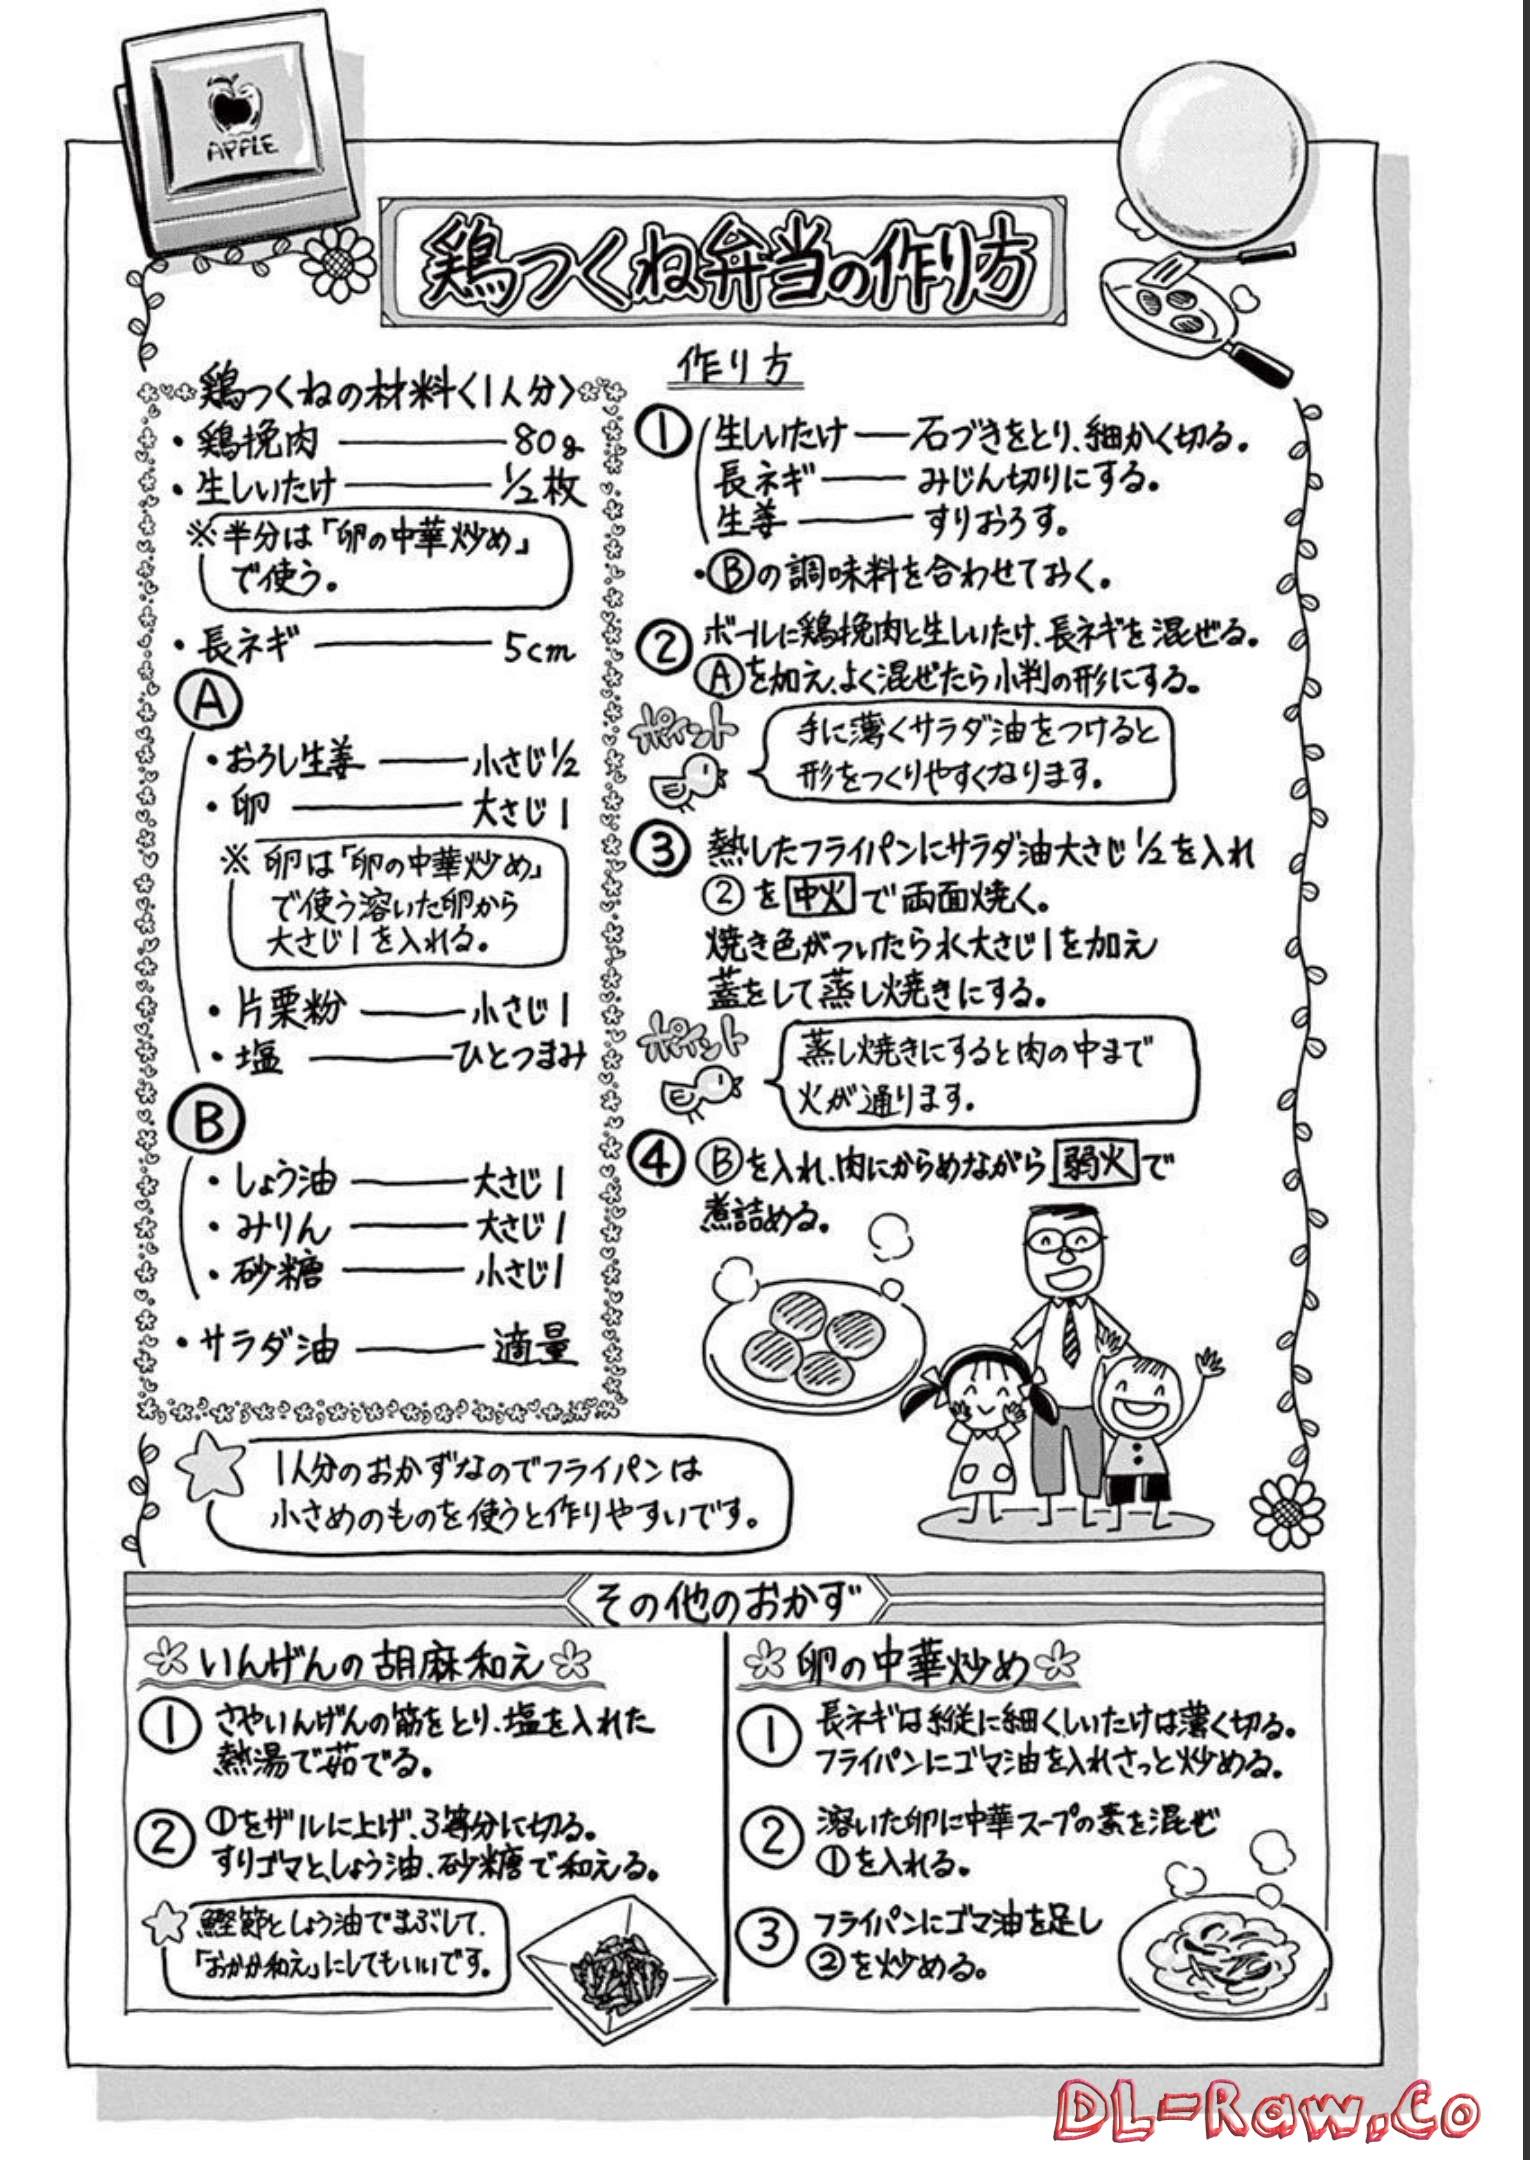 APPLE
鶏つくね弁当の作り方
鶏つくねの材料〈1人分〉
・鶏挽肉 ── 80g
・生しいたけ ── 1/2枚
※半分は「卵の中華炒め」
で使う。
・長ネギ ── 5cm
Ⓐ
・おろし生姜 ── 小さじ1/2
・卵 ── 大さじ1
※卵は「卵の中華炒め」
で使う溶いた卵から
大さじ1を入れる。
・片栗粉 ── 小さじ1
・塩 ── ひとつまみ
Ⓑ
・しょう油 ── 大さじ1
・みりん ── 大さじ1
・砂糖 ── 小さじ1
・サラダ油 ── 適量
作り方
① 生しいたけ ── 石づきをとり、細かく切る。
長ネギ ── みじん切りにする。
生姜 ── すりおろす。
・Ⓑの調味料を合わせておく。
② ボールに鶏挽肉と生しいたけ、長ネギを混ぜる。
Ⓐを加え、よく混ぜたら小判の形にする。
ポイント
手に薄くサラダ油をつけると
形をつくりやすくなります。
③ 熱したフライパンにサラダ油大さじ1/2を入れ
②を中火で両面焼く。
焼き色がついたら水大さじ1を加え
蓋をして蒸し焼きにする。
ポイント
蒸し焼きにすると肉の中まで
火が通ります。
④ Ⓑを入れ、肉にからめながら弱火で
煮詰める。
1人分のおかずなのでフライパンは
小さめのものを使うと作りやすいです。
その他のおかず
いんげんの胡麻和え
① さやいんげんの筋をとり、塩を入れた
熱湯で茹でる。
② ①をザルに上げ、3等分に切る。
すりゴマと、しょう油、砂糖で和える。
鰹節としょう油でまぶして、
「おかか和え」にしてもいいです。
卵の中華炒め
① 長ネギは縦に細くしいたけは薄く切る。
フライパンにゴマ油を入れさっと炒める。
② 溶いた卵に中華スープの素を混ぜ
①を入れる。
③ フライパンにゴマ油を足し
②を炒める。
DL-Raw.Co